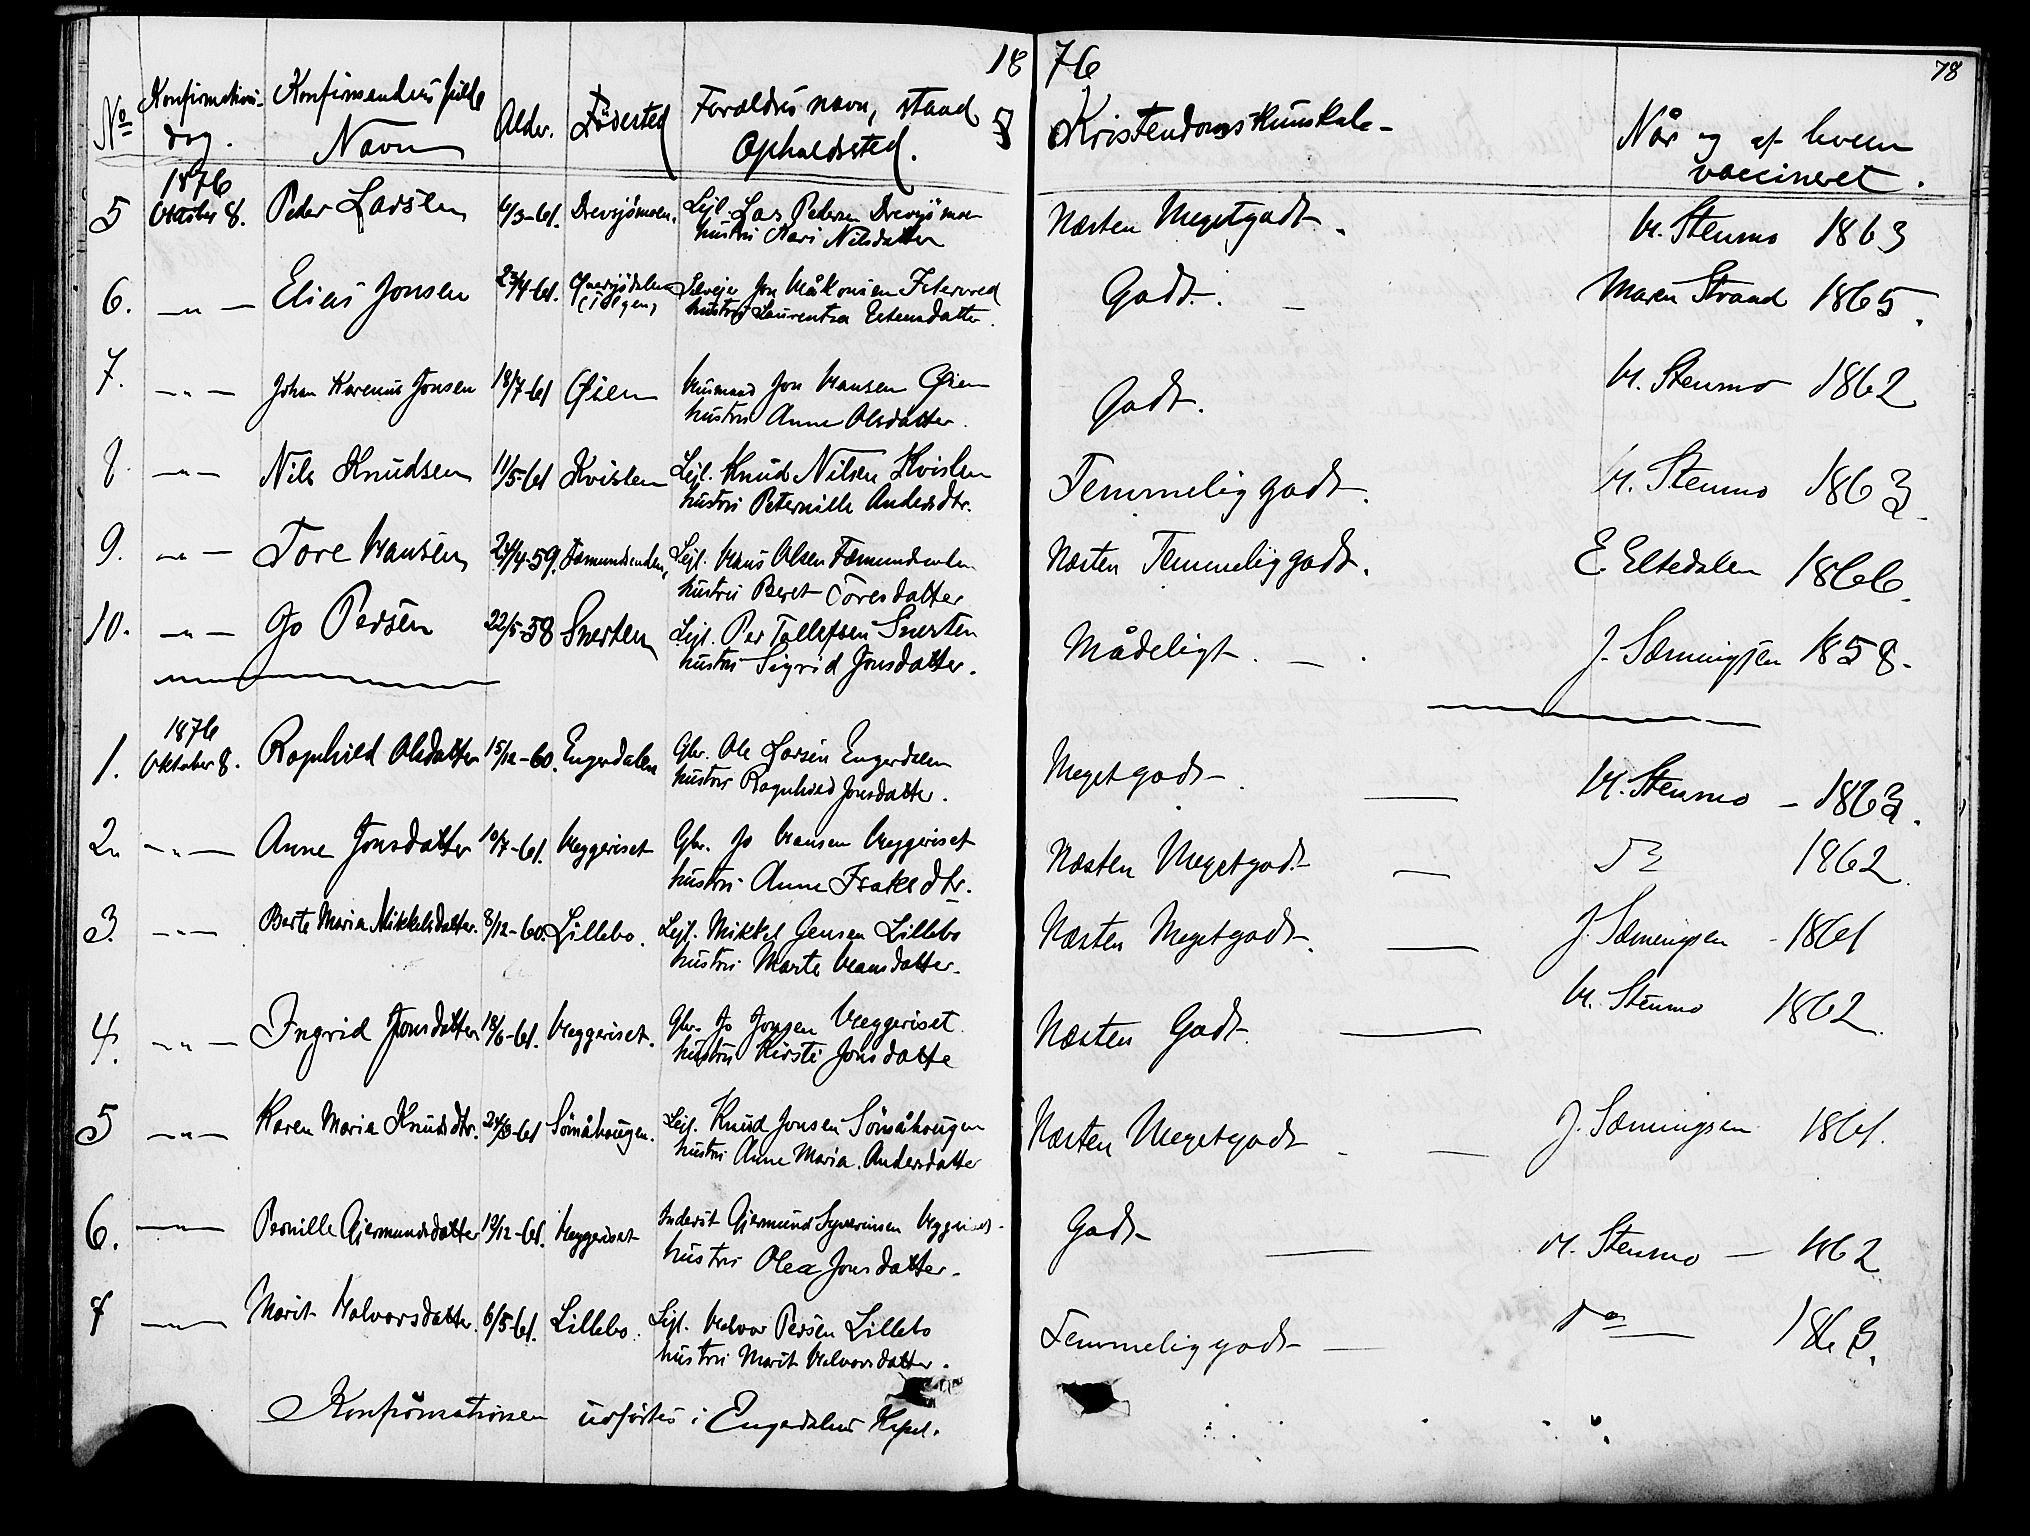 18 76 78
No Konfirmations- dag. Konfirmandens fulde Navn Alder. Födested Foræeldres navn, stand & Opholdssted. Kristendomskunskab- Når og af hvem vaccineret.
5 1876 Oktober 8. Peder Larsen 6/3-61. Drevsjömoen. Lejl. Lars Pedersen Drevsjömoen Næsten Megetgodt. H. Stenmo 1863
hustru Kari Nilsdatter
6. —"— Elias Jonsen 23/4-61. (Tolgen) Selvejer Jon Håkonsen Godt. — Maren Strand 1865.
hustru Laurentsa Estensdatter.
7. —"— Johan Karenus Jonsen 18/7-61 Øien Husmand Jon Hansen Øien Godt. H. Stenmo 1862
hustru Anne Olsdatter.
8. —"— Nils Knudsen 11/5-61 Kvislen Lejl. Knud Nilsen Kvislen Temmelig godt. H. Stenmo 1863.
hustru Peternille Andersdtr.
9. —"— Tore Hansen 24/4-59. Fæmundsenden, Lejl. Hans Olsen Fæmundsenden Næsten Temmelig godt. E. Eltedalen 1866.
hustru Beret Toresdatter
10. —"— Jo Persen 22/5-58 Snerten Lejl. Per Tollefsen Snerten Mådeligt. — J. Sæmingsen 1858.
hustru Sigrid Jonsdatter.
1. 1876 Oktober 8. Ragnhild Olsdatter 15/12-60. Engerdalen Gbr. Ole Larsen Engerdalen Megetgodt — H. Stenmo – 1863.
hustru Ragnhild Jonsdatter.
2. —"— Anne Jonsdatter 10/7-61. Heggeriset Gbr. Jo Hansen Heggeriset Næsten Megetgodt — do 1862.
hustru Anne Isaksdtr.
3. —"— Berte Maria Mikkelsdatter. 8/12-60. Lillebo. Lejl. Mikkel Jensen Lillebo Næsten Megetgodt. — J. Sæmingsen - 1861
hustru Marte Hansdatter.
4. —"— Ingrid Jonsdatter 18/6-61. Heggeriset. Gbr. Jo Jonsen Heggeriset. Næsten Godt. — H. Stenmo 1862.
hustru Kirsti Jonsdatte
5 —"— Karen Maria Knudsdtr. 24/3-61 Sömåhougen. Lejl. Knud Jonsen Sömåhougen Næsten Megetgodt - — J. Sæmingsen 1861.
hustru Anne Maria Andersdatter
6. —"— Pernille Gjermundsdatter 12/12-61. Heggeriset Inderst Gjermund Syverinsen Heggeriset- Godt — H. Stenmo — 1862
hustru Olea Jonsdatter.
7 —"— Marit Halvorsdatter. 6/5-61. Lillebo. Lejl. Halvor Persen Lillebo Temmelig godt — do — 1863.
hustru Marit Halvorsdatter.
Konfirmationen udførtes i Engerdalens Kapel.